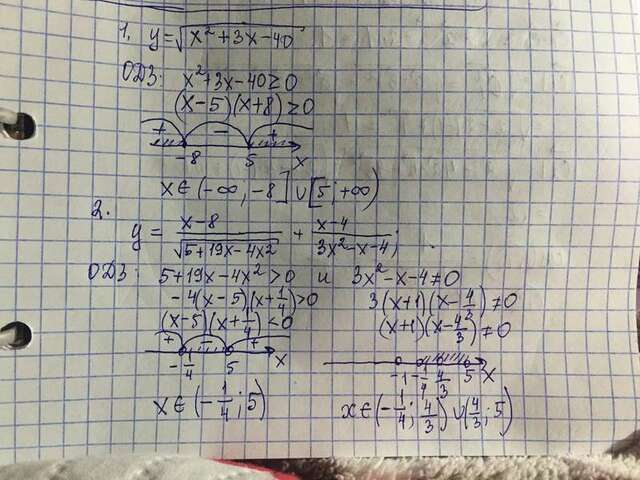 1, y=√x²+3x-40
ОДЗ: x²+3x-40≥0
(x-5)(x+8)≥0
+ - +
-8 5 x
x∈(-∞,-8]∪[5,+∞)
2.
y = x-8/√5+19x-4x² + x-4/3x²-x-4;
ОДЗ: 5+19x-4x²>0 и 3x²-x-4≠0
-4(x-5)(x+1/4)>0 3(x+1)(x-4/3)≠0
(x-5)(x+1/4)<0 (x+1)(x-4/3)≠0
+ - +
-1/4 5 x -1 -1/4 4/3 5 x
x∈(-1/4;5) x∈(-1/4;4/3)∪(4/3;5)